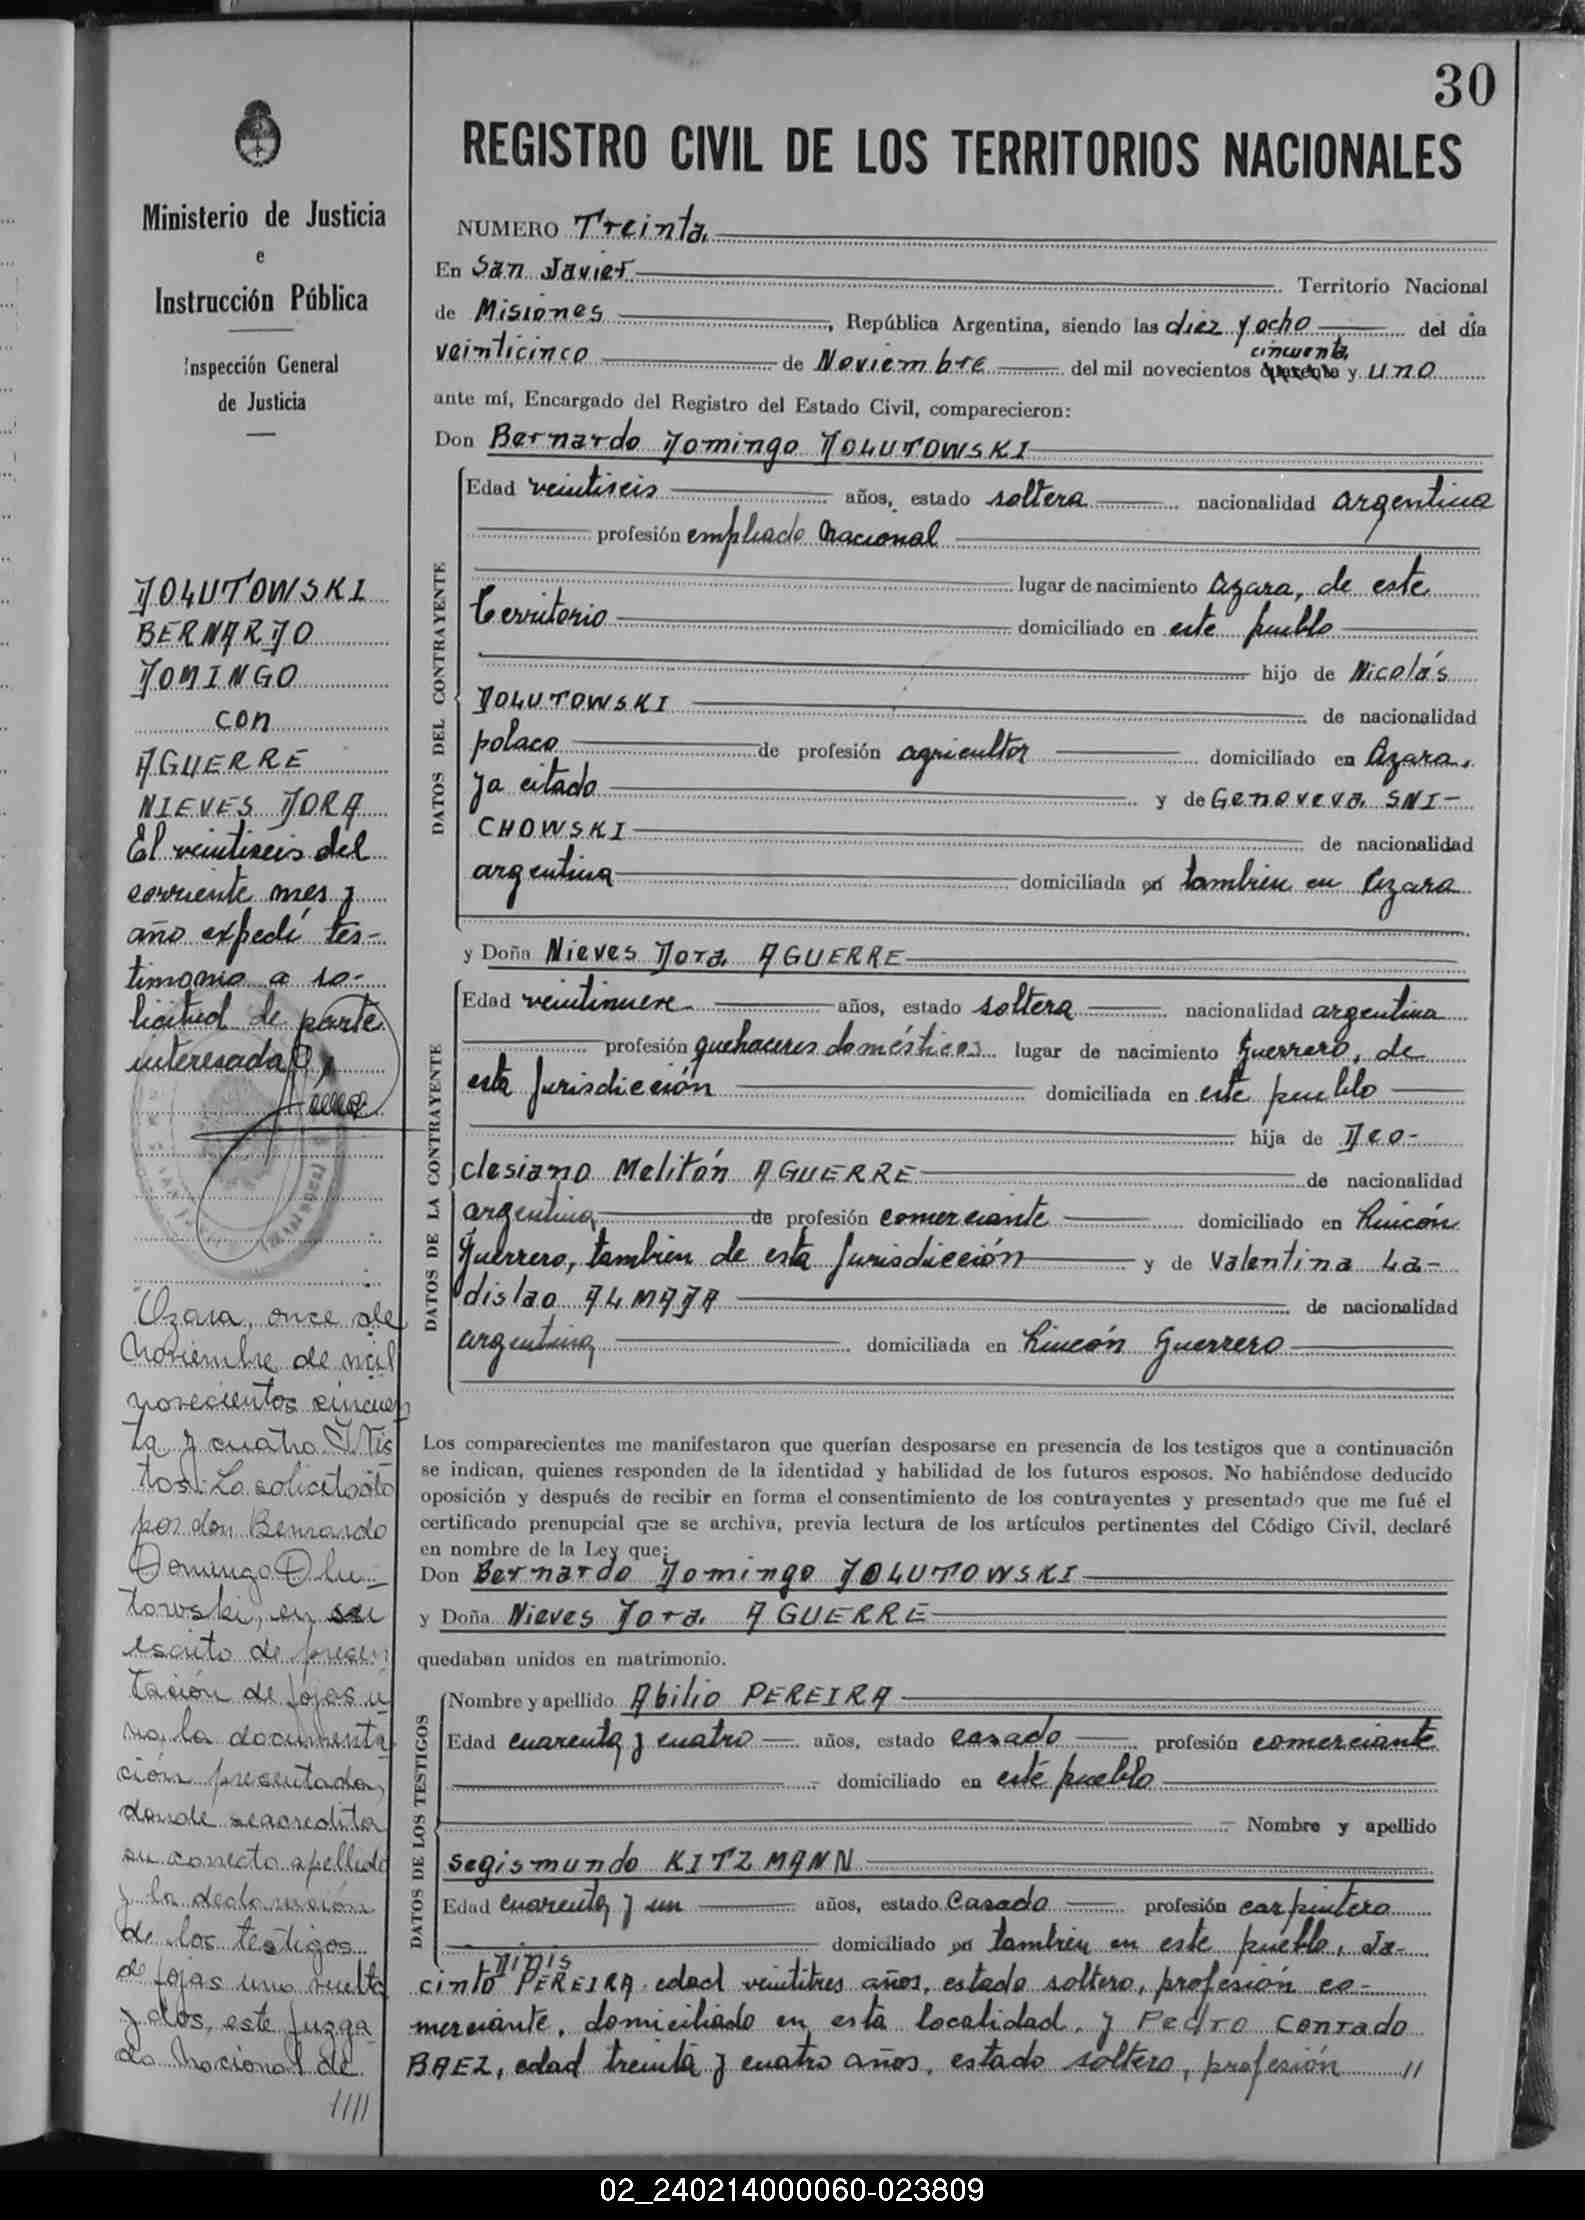 30
REGISTRO CIVIL DE LOS TERRITORIOS NACIONALES
Ministerio de Justicia
e
Instrucción Pública
Inspección General
de Justicia
DOLUTOWSKI
BERNARDO
DOMINGO
con
AGUERRE
NIEVES DORA
El veintiseis del
corriente mes y
año expedí tes-
timonio a so-
licitud de parte
interesada
Azara, once de
Noviembre de mil
novecientos cincuen
ta y cuatro. Vis
tos: Lo solicitado
por don Bernardo
Domingo Dlu-
towski, en su
escrito de presen
tación de fojas u
no, la documenta
ción presentada,
donde se acredita
su correcto apellido
y la declaración
de los testigos
de fojas uno vuelta
y dos, este Juzga
do Nacional de
////
NUMERO Treinta
En San Javier Territorio Nacional
de Misiones, República Argentina, siendo las diez y ocho del día
veinticinco de Noviembre del mil novecientos cincuenta y uno
ante mí, Encargado del Registro del Estado Civil, comparecieron:
Don Bernardo Domingo DOLUTOWSKI
DATOS DEL CONTRAYENTE
Edad veintiseis años, estado soltera nacionalidad argentina
profesión empleado Nacional
lugar de nacimiento Azara, de este
territorio domiciliado en este pueblo
hijo de Nicolás
DOLUTOWSKI de nacionalidad
polaco de profesión agricultor domiciliado en Azara,
ya citado y de Genoveva SNI-
CHOWSKI de nacionalidad
argentina domiciliada en tambien en Azara
y Doña Nieves Dora AGUERRE
DATOS DE LA CONTRAYENTE
Edad veintinueve años, estado soltera nacionalidad argentina
profesión quehaceres domésticos lugar de nacimiento Guerrero, de
esta Jurisdicción domiciliada en este pueblo
hija de Deo-
clesiano Melitón AGUERRE de nacionalidad
argentina de profesión comerciante domiciliado en Rincón
Guerrero, tambien de esta Jurisdicción y de Valentina La-
dislao ALMADA de nacionalidad
argentina domiciliada en Rincón Guerrero
Los comparecientes me manifestaron que querían desposarse en presencia de los testigos que a continuación
se indican, quienes responden de la identidad y habilidad de los futuros esposos. No habiéndose deducido
oposición y después de recibir en forma el consentimiento de los contrayentes y presentado que me fué el
certificado prenupcial que se archiva, previa lectura de los artículos pertinentes del Código Civil, declaré
en nombre de la Ley que:
Don Bernardo Domingo DOLUTOWSKI
y Doña Nieves Dora AGUERRE
quedaban unidos en matrimonio.
DATOS DE LOS TESTIGOS
Nombre y apellido Abilio PEREIRA
Edad cuarenta y cuatro años, estado casado profesión comerciante
domiciliado en este pueblo
Nombre y apellido
Segismundo KITZMANN
Edad cuarenta y un años, estado casado profesión carpintero
domiciliado en tambien en este pueblo, Ja-
cinto DINIS PEREIRA edad veintitres años, estado soltero, profesión co-
merciante, domiciliado en esta localidad, y Pedro Conrado
BAEZ, edad treinta y cuatro años, estado soltero, profesión //
02_240214000060-023809